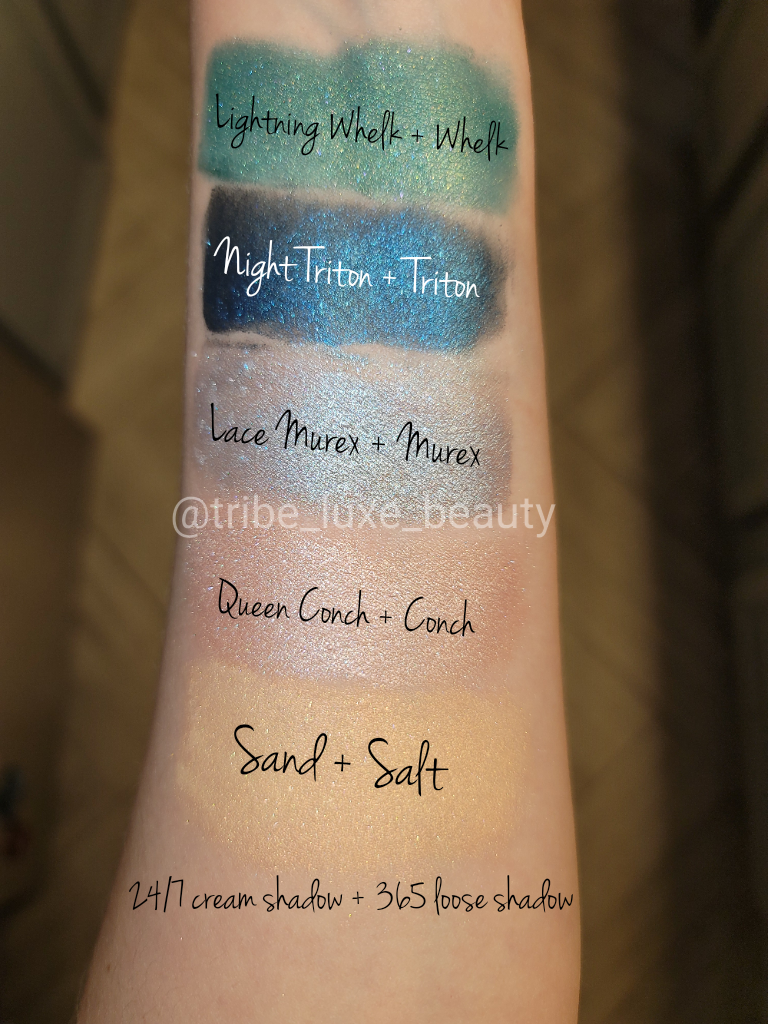 Lightning Whelk + Whelk
Night Triton + Triton
Lace Murex + Murex
@tribe_luxe_beauty
Queen Conch + Conch
Sand + Salt
24/7 cream shadow + 365 loose shadow